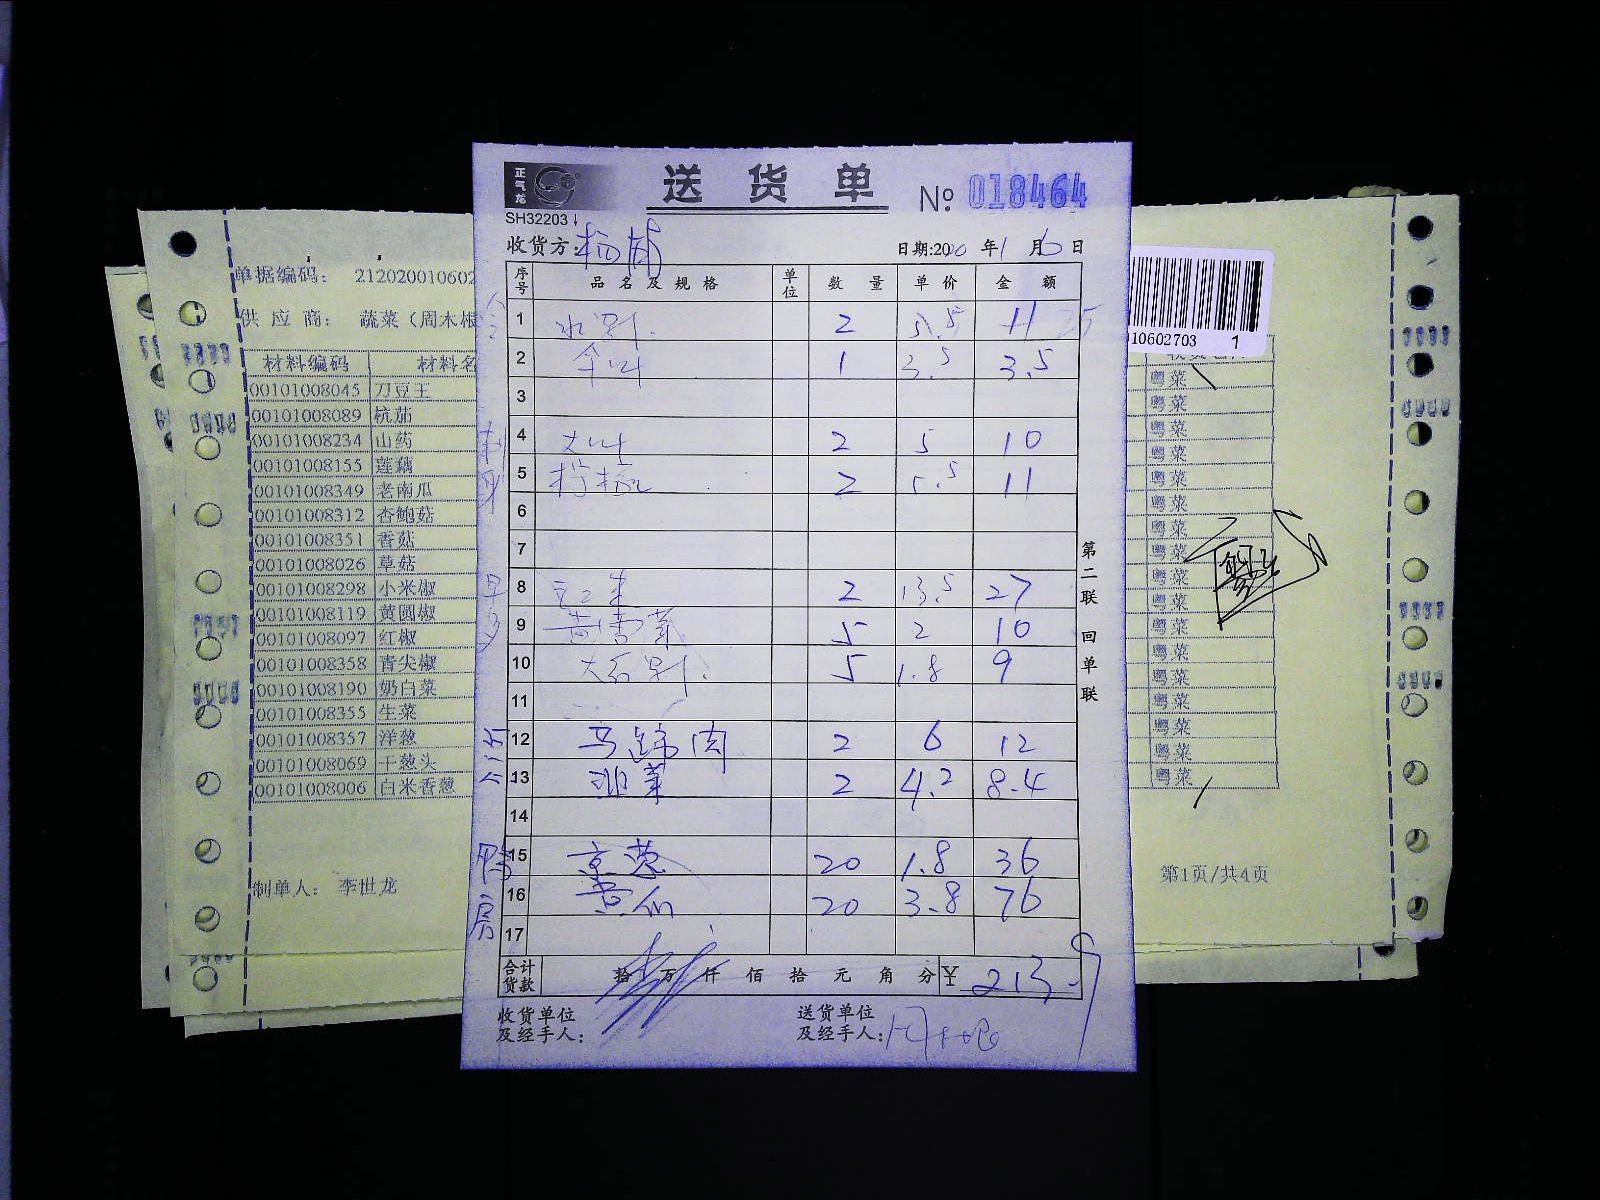 正气龙
送货单
№ 018464
SH32203
收货方:
日期:2020 年 1 月 6 日
序号 品名及规格 单位 数量 单价 金额
1 2 5.5 11
2 1 3.5 3.5
3
4 2 5 10
5 2 5.5 11
6
7
8 2 13.5 27
9 5 2 10
10 5 1.8 9
11
12 马蹄肉 2 6 12
13 韭菜 2 4.2 8.4
14
15 京葱 20 1.8 36
16 20 3.8 76
17
合计货款 拾 万 仟 佰 拾 元 角 分 ¥ 213.9
收货单位及经手人:
送货单位及经手人:
第二联 回单联
单据编码: 212020010602
供应商: 蔬菜(周木根
材料编码 材料名
00101008045 刀豆王
00101008089 杭茄
00101008234 山药
00101008155 莲藕
00101008349 老南瓜
00101008312 杏鲍菇
00101008351 香菇
00101008026 草菇
00101008298 小米椒
00101008119 黄圆椒
00101008097 红椒
00101008358 青尖椒
00101008190 奶白菜
00101008355 生菜
00101008357 洋葱
00101008069 干葱头
00101008006 白米香葱
制单人: 李世龙
10602703 1
粤菜
粤菜
粤菜
粤菜
粤菜
粤菜
粤菜
粤菜
粤菜
粤菜
粤菜
粤菜
粤菜
粤菜
粤菜
粤菜
粤菜
第1页/共4页